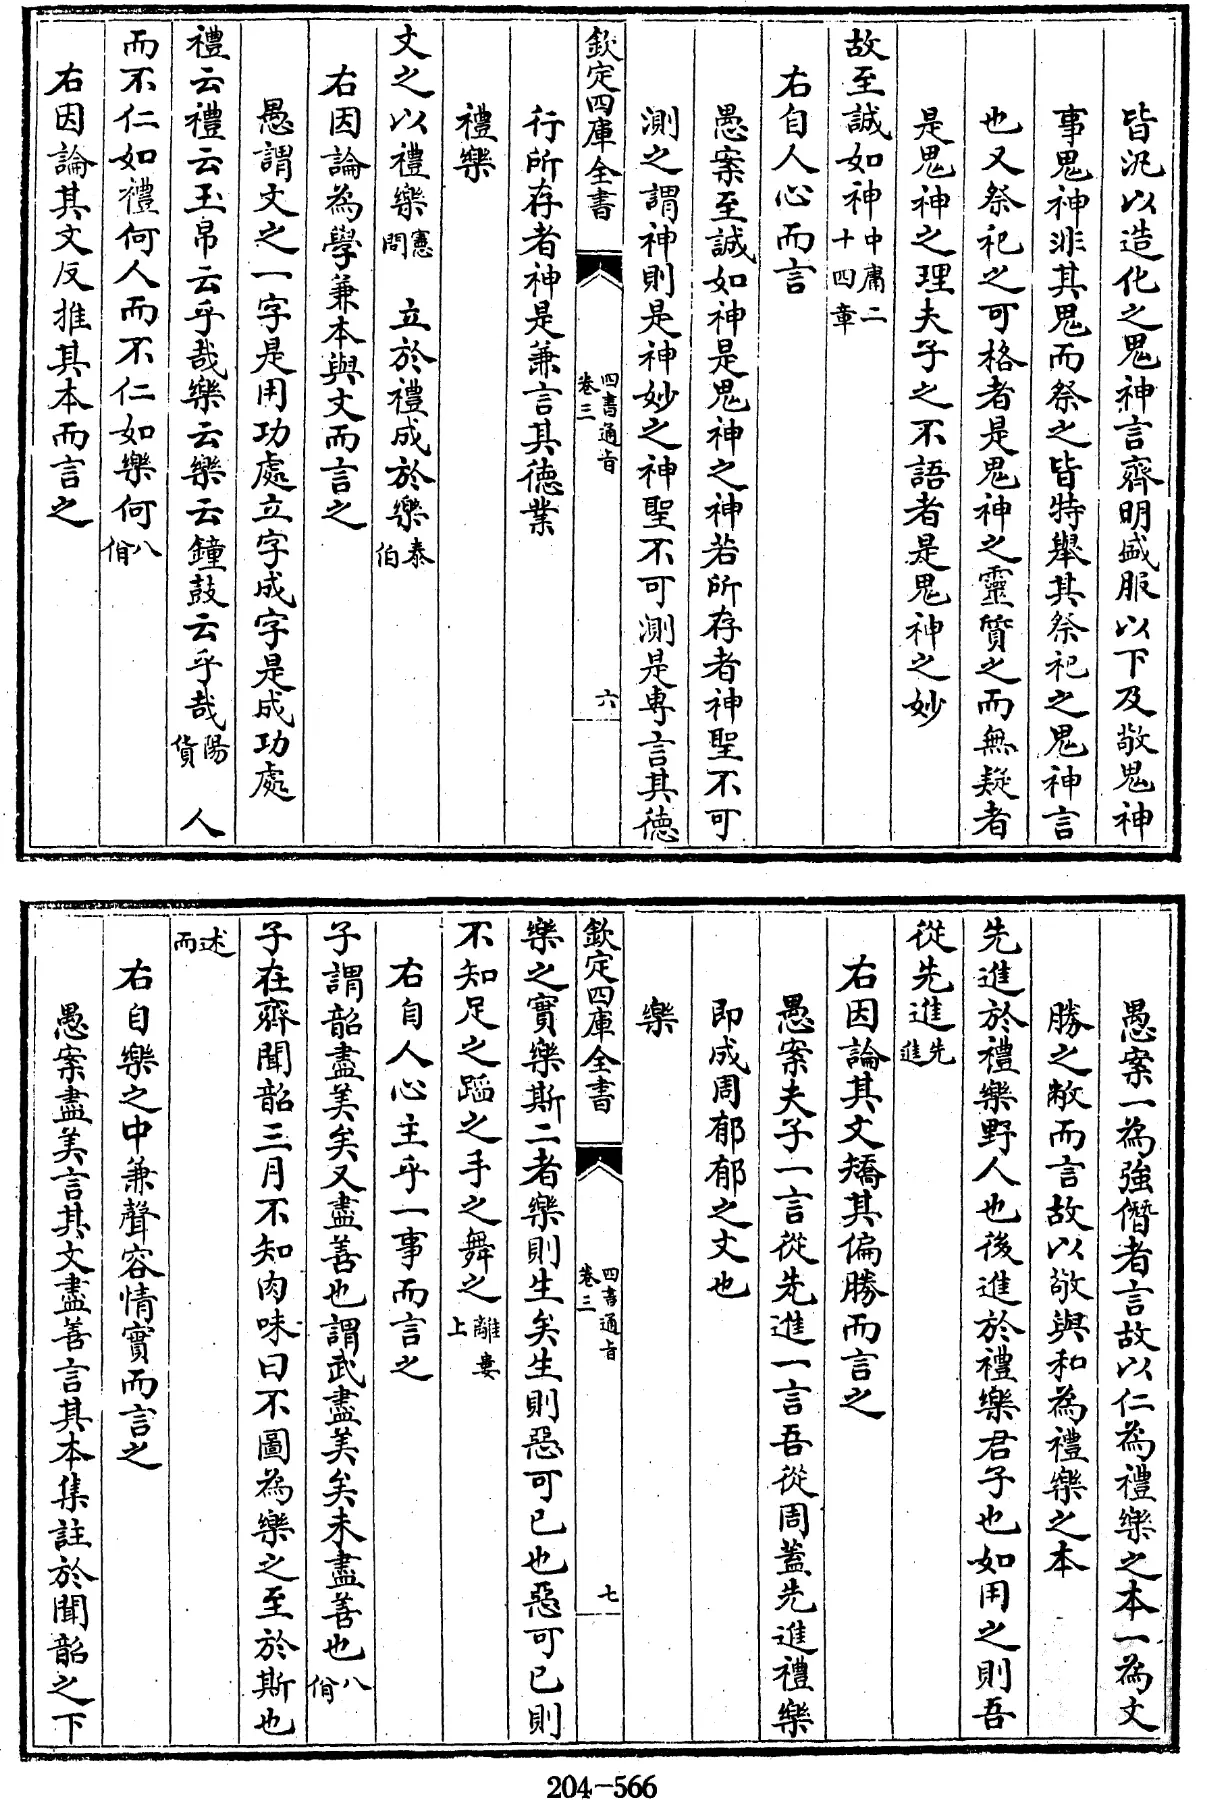 皆汎以造化之鬼神言齊明盛服以下及敬鬼神
事鬼神非其鬼而祭之皆特舉其祭祀之鬼神言
也又祭祀之可格者是鬼神之靈質之而無疑者
是鬼神之理夫子之不語者是鬼神之妙
故至誠如神中庸二十四章
右自人心而言
愚案至誠如神是鬼神之神若所存者神聖不可
測之謂神則是神妙之神聖不可測是專言其德
欽定四庫全書
四書通旨
卷三
六
行所存者神是兼言其德業
禮樂
文之以禮樂憲問 立於禮成於樂泰伯
右因論為學兼本與文而言之
愚謂文之一字是用功處立字成字是成功處
禮云禮云玉帛云乎哉樂云樂云鐘鼓云乎哉陽貨 人
而不仁如禮何人而不仁如樂何八佾
右因論其文反推其本而言之
愚案一為強僭者言故以仁為禮樂之本一為文
勝之敝而言故以敬與和為禮樂之本
先進於禮樂野人也後進於禮樂君子也如用之則吾
從先進先進
右因論其文矯其偏勝而言之
愚案夫子一言從先進一言吾從周蓋先進禮樂
即成周郁郁之文也
樂
欽定四庫全書
四書通旨
卷三
七
樂之實樂斯二者樂則生矣生則惡可已也惡可已則
不知足之蹈之手之舞之離婁上
右自人心主乎一事而言之
子謂韶盡美矣又盡善也謂武盡美矣未盡善也八佾
子在齊聞韶三月不知肉味曰不圖為樂之至於斯也
述而
右自樂之中兼聲容情實而言之
愚案盡美言其文盡善言其本集註於聞韶之下
204-566